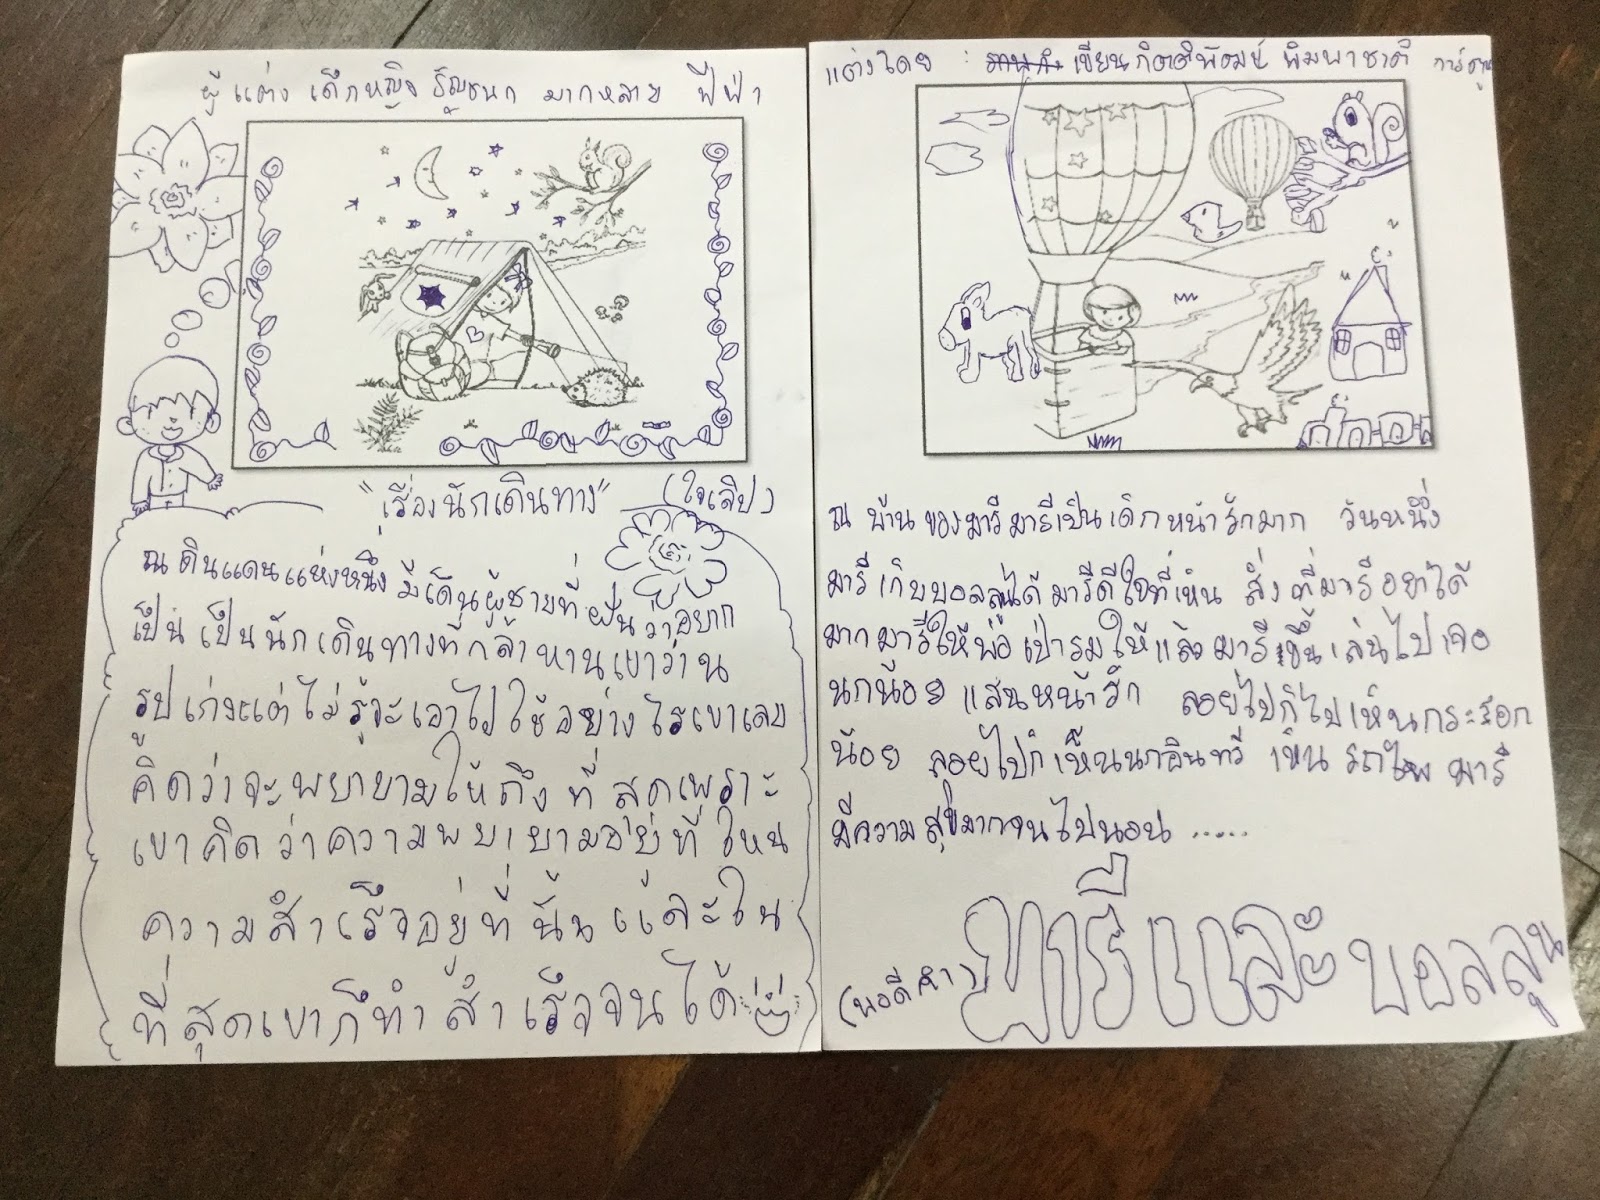 ผู้แต่ง เด็กหญิง ธัญชนก มากหลาย ฟีฟ่า
"เรื่องนักเดินทาง"
ณ ดินแดนแห่งหนึ่ง มีเด็กผู้ชายที่ฝันว่าอยาก
เป็น เป็นนักเดินทางที่กล้าหานเขาวาน
รูปเก่งแต่ไม่รู้จะเอาไปใช้อย่างไรเขาเลย
คิดว่าจะพยายามให้ถึงที่สุดเพราะ
เขาคิดว่าความพยายามอยู่ที่ไหน
ความสำเร็จอยู่ที่นั้น และใน
ที่สุดเขาก็ทำสำเร็จจนได้
แต่งโดย : เขียนกิตติพัฒน์ พิมพาชาติ การ์ตูน
ณ บ้านของมารีมารีเป็นเด็กหน้ารักมาก วันหนึ่ง
มารีเก็บบอลลูนได้มารีดีใจที่เห็น สิ่งที่มารีอยาได้
มากมารีให้พ่อเป่ารมให้แล้วมารีขึ้นเล่นไปเจอ
นกน้อย แสนหน้ารัก ลอยไปก็ไปเห็นกระรอก
น้อย ลอยไปก็เห็นนกอินทรี เห็นรถไฟ มารี
มีความสุขมากจนไปนอน .....
มารีและบอลลูน